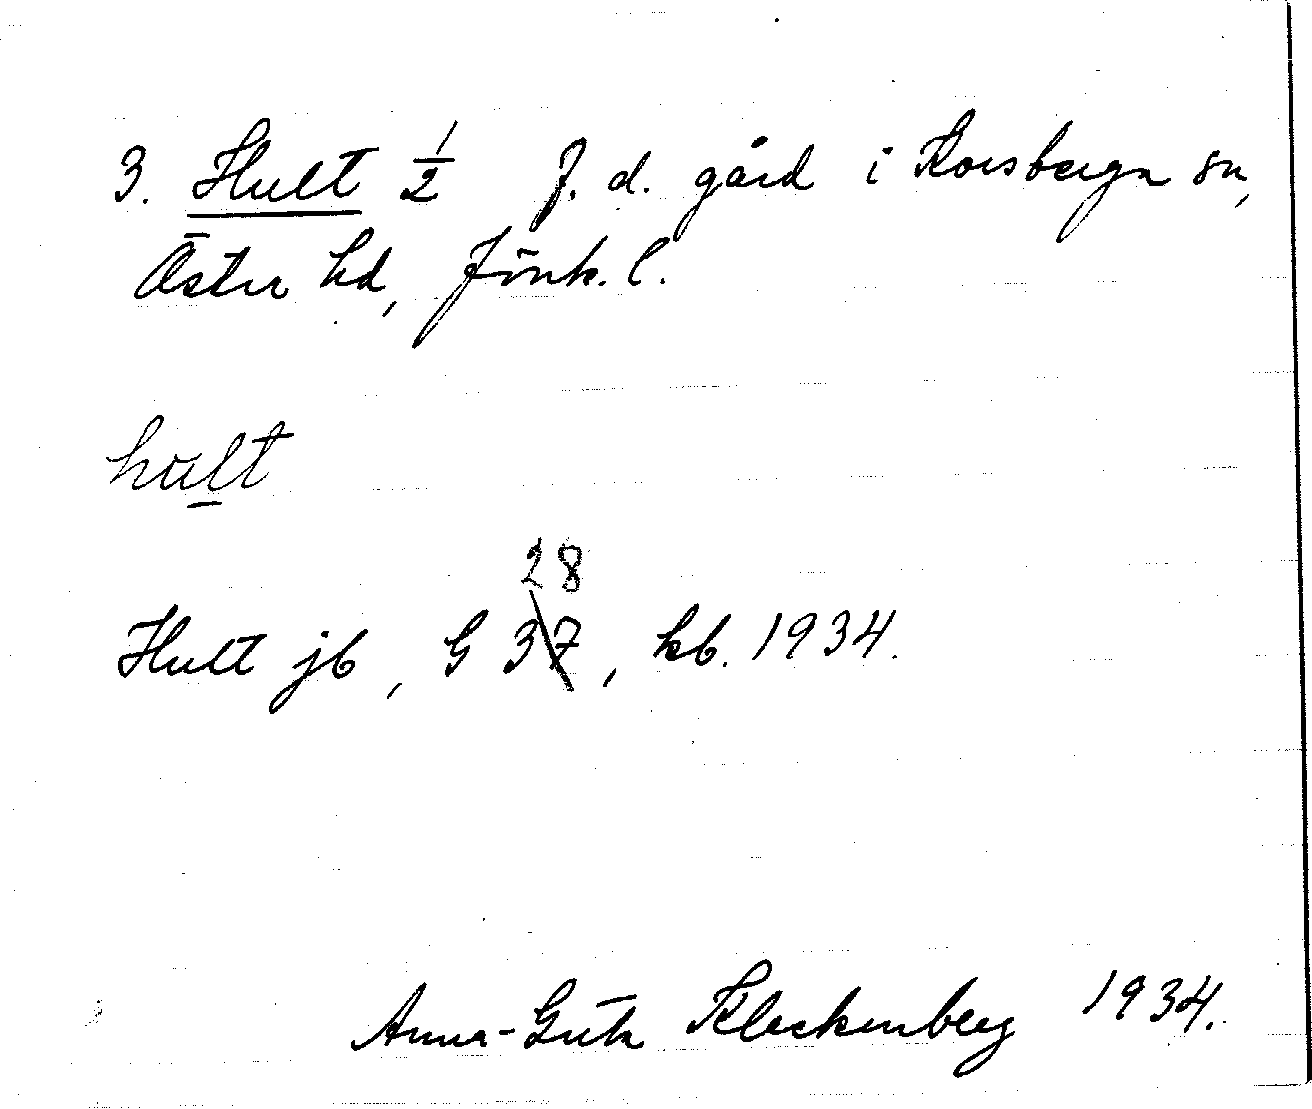 3. Hult 1/2 f. d. gård i Korsberga sn,
Öster hd, Jönk. l.
hult
28
Hult jb, G 37, kb. 1934.
Anna-Greta Kleckenberg 1934.